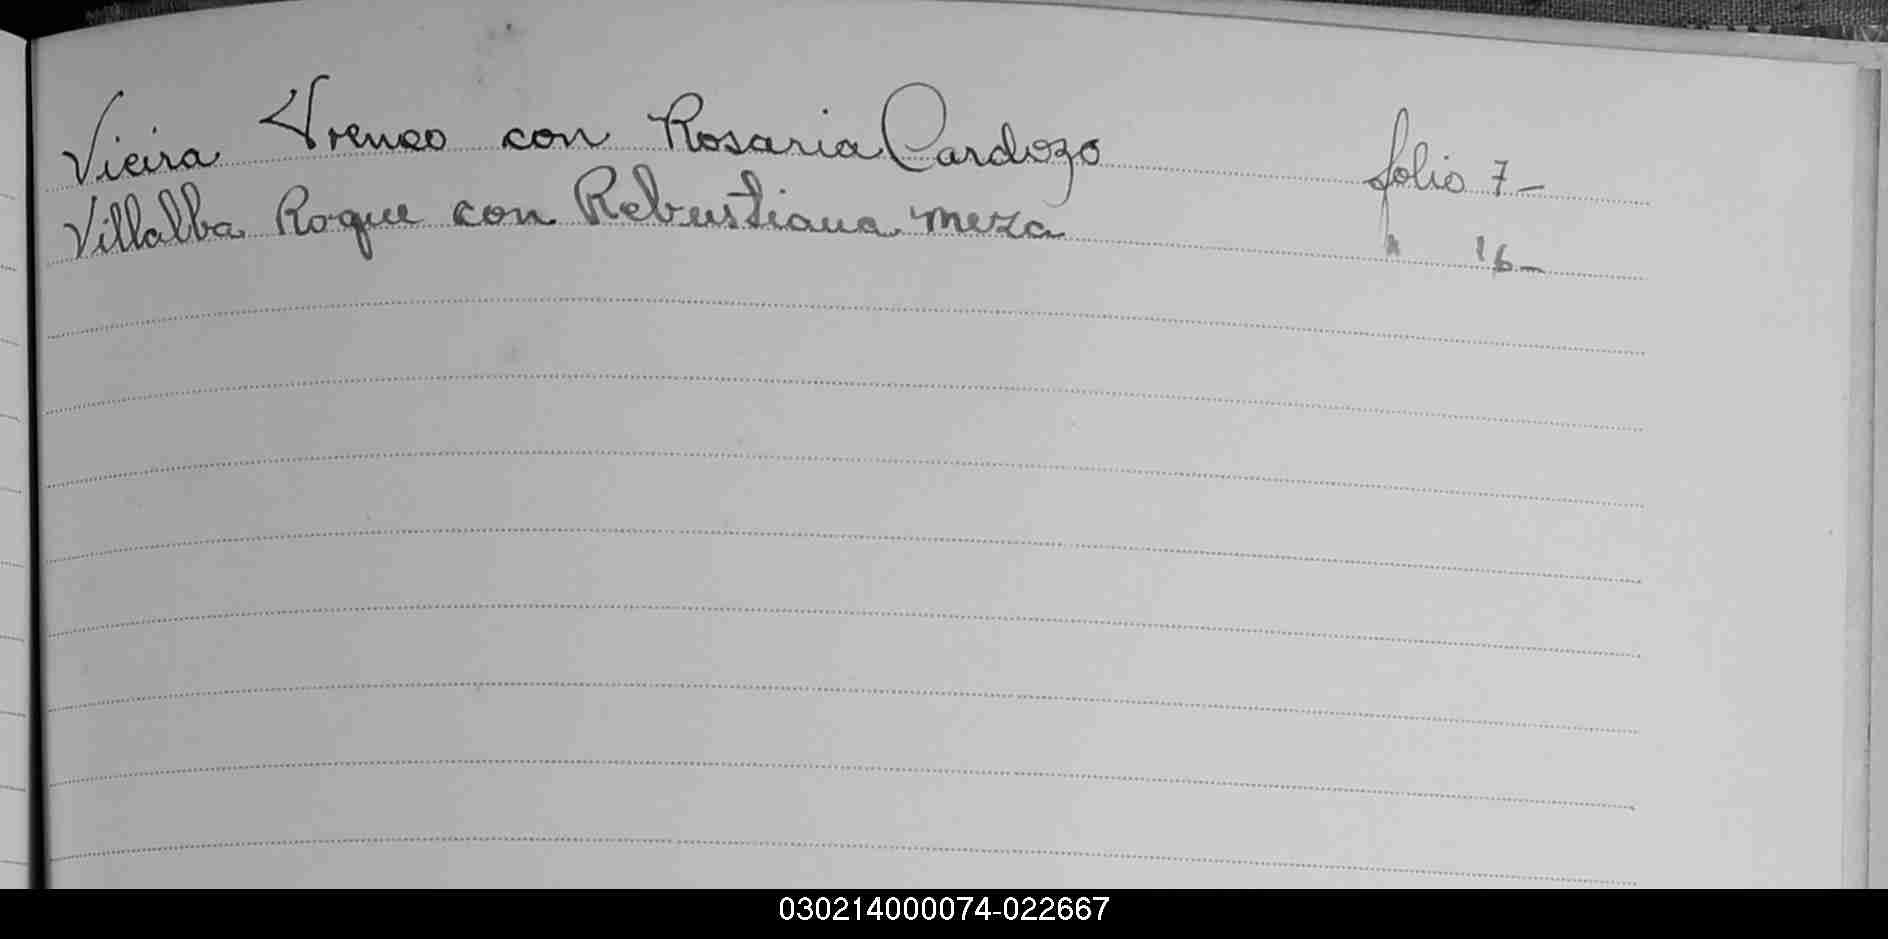 Vieira Ireneo con Rosaria Cardozo folio 7-
Villalba Roque con Robustiana meza " 16-
030214000074-022667